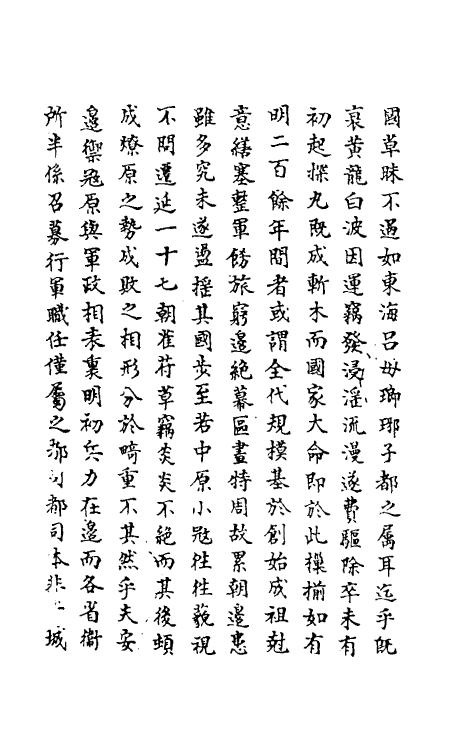 國草昧不過如東海呂母瑯琊子都之屬耳迄乎既
衰黃龍白波因運竊發浸淫流漫遂費驅除卒未有
初起探丸既成斬木而國家大命即於此樔揃如有
明二百餘年間者或謂全代規摸基於創始成祖尅
意繕塞整軍飭旅窮邊絶幕區畫特周故累朝邊患
雖多究未遂盪搖其國步至若中原小冦徃徃藐視
不問遷延一十七朝萑苻草竊炎炎不絶而其後蝢
成燎原之勢成敗之相形分於畸重不其然乎夫安
邊禦冦原與軍政相表裏明初兵力在邊而各省衛
所半係召募行軍職任僅屬之都司都司本非城